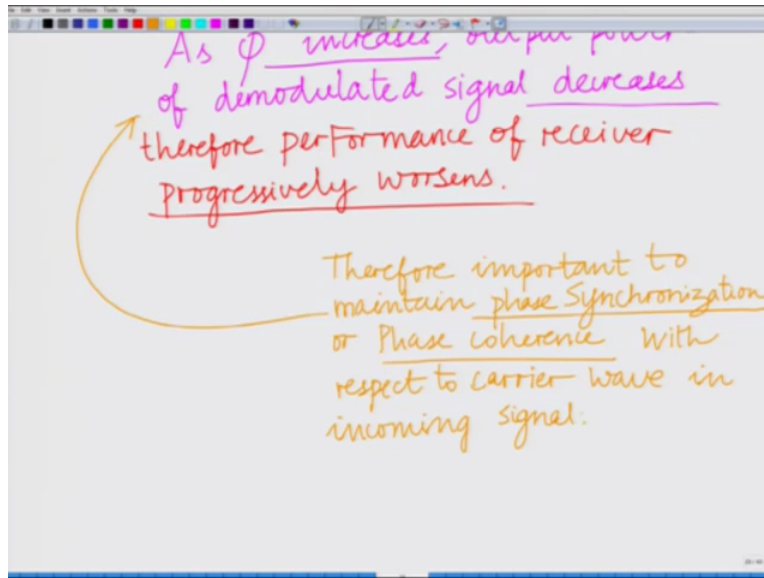 As φ increases, output power
of demodulated signal decreases
therefore performance of receiver
progressively worsens.
Therefore important to
maintain phase Synchronization
or Phase coherence with
respect to carrier wave in
incoming signal.